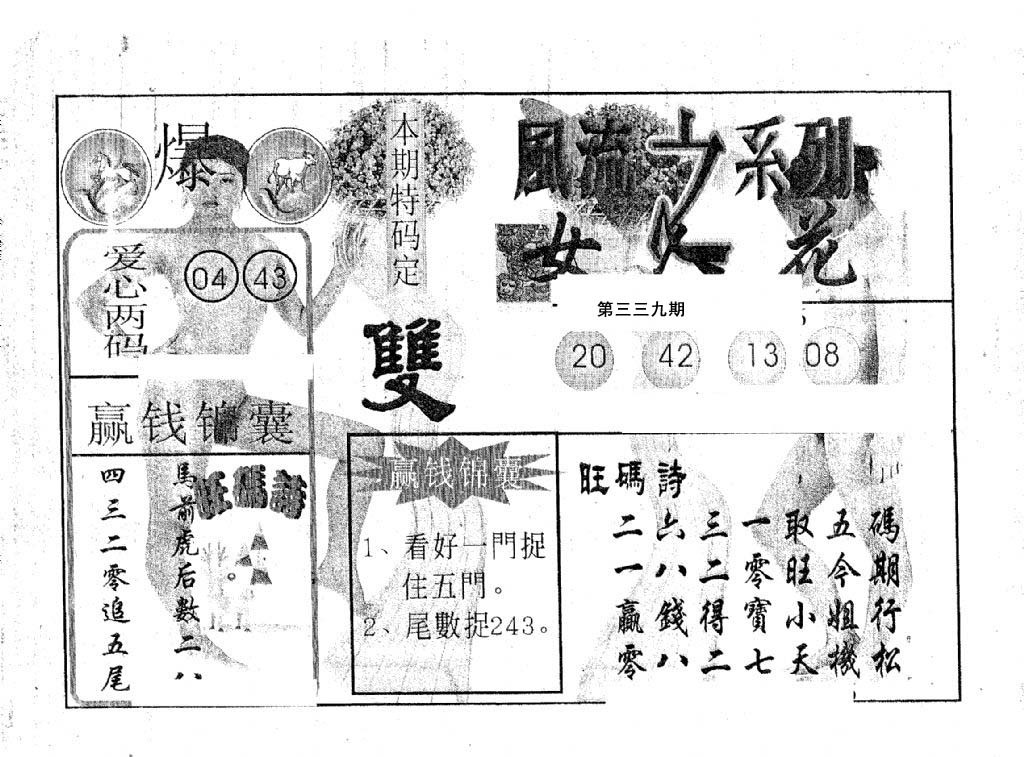 爆
爱心两码
04 43
赢钱锦囊
馬前虎后数二八
四三二零追五尾
旺碼詩
本期特码定
雙
風流女人系列
花
第三三九期
20 42 13 08
赢钱锦囊
1、看好一門捉
住五門。
2、尾數捉243。
旺碼詩
碼期行松
五今姐機
取旺小天
一零寶七
三二得二
六八錢八
二一贏零